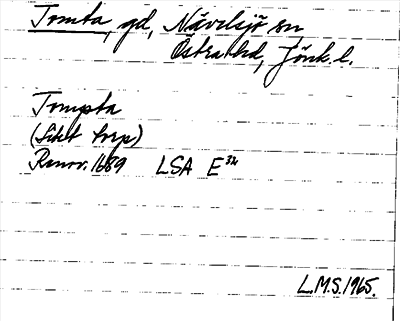 Tomta, gd, Nävelsjö sn
Östra hd, Jönk. l.
Tompta
(Litet torp)
Renov. 1689 LSA E 32
L.M.S. 1965.